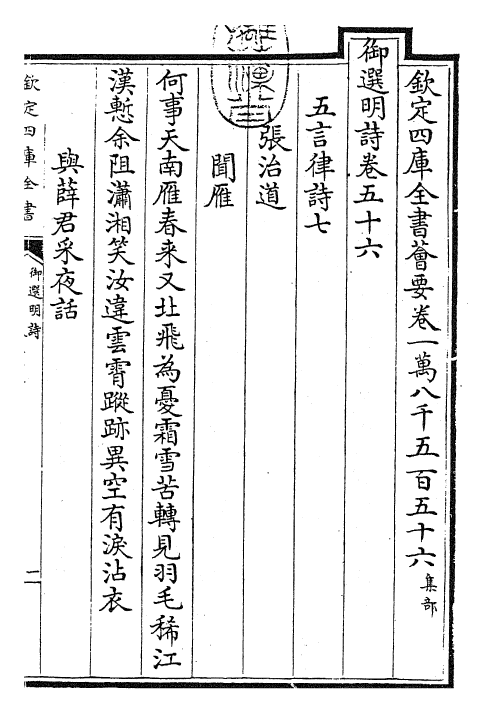 欽定四庫全書薈要卷一萬八千五百五十六集部
御選明詩卷五十六
五言律詩七
張治道
聞雁
何事天南雁春来又北飛為憂霜雪苦轉見羽毛稀江
漢慙余阻瀟湘笑汝違雲霄蹤跡異空有淚沾衣
與薛君采夜話
欽定四庫全書
御選明詩
一